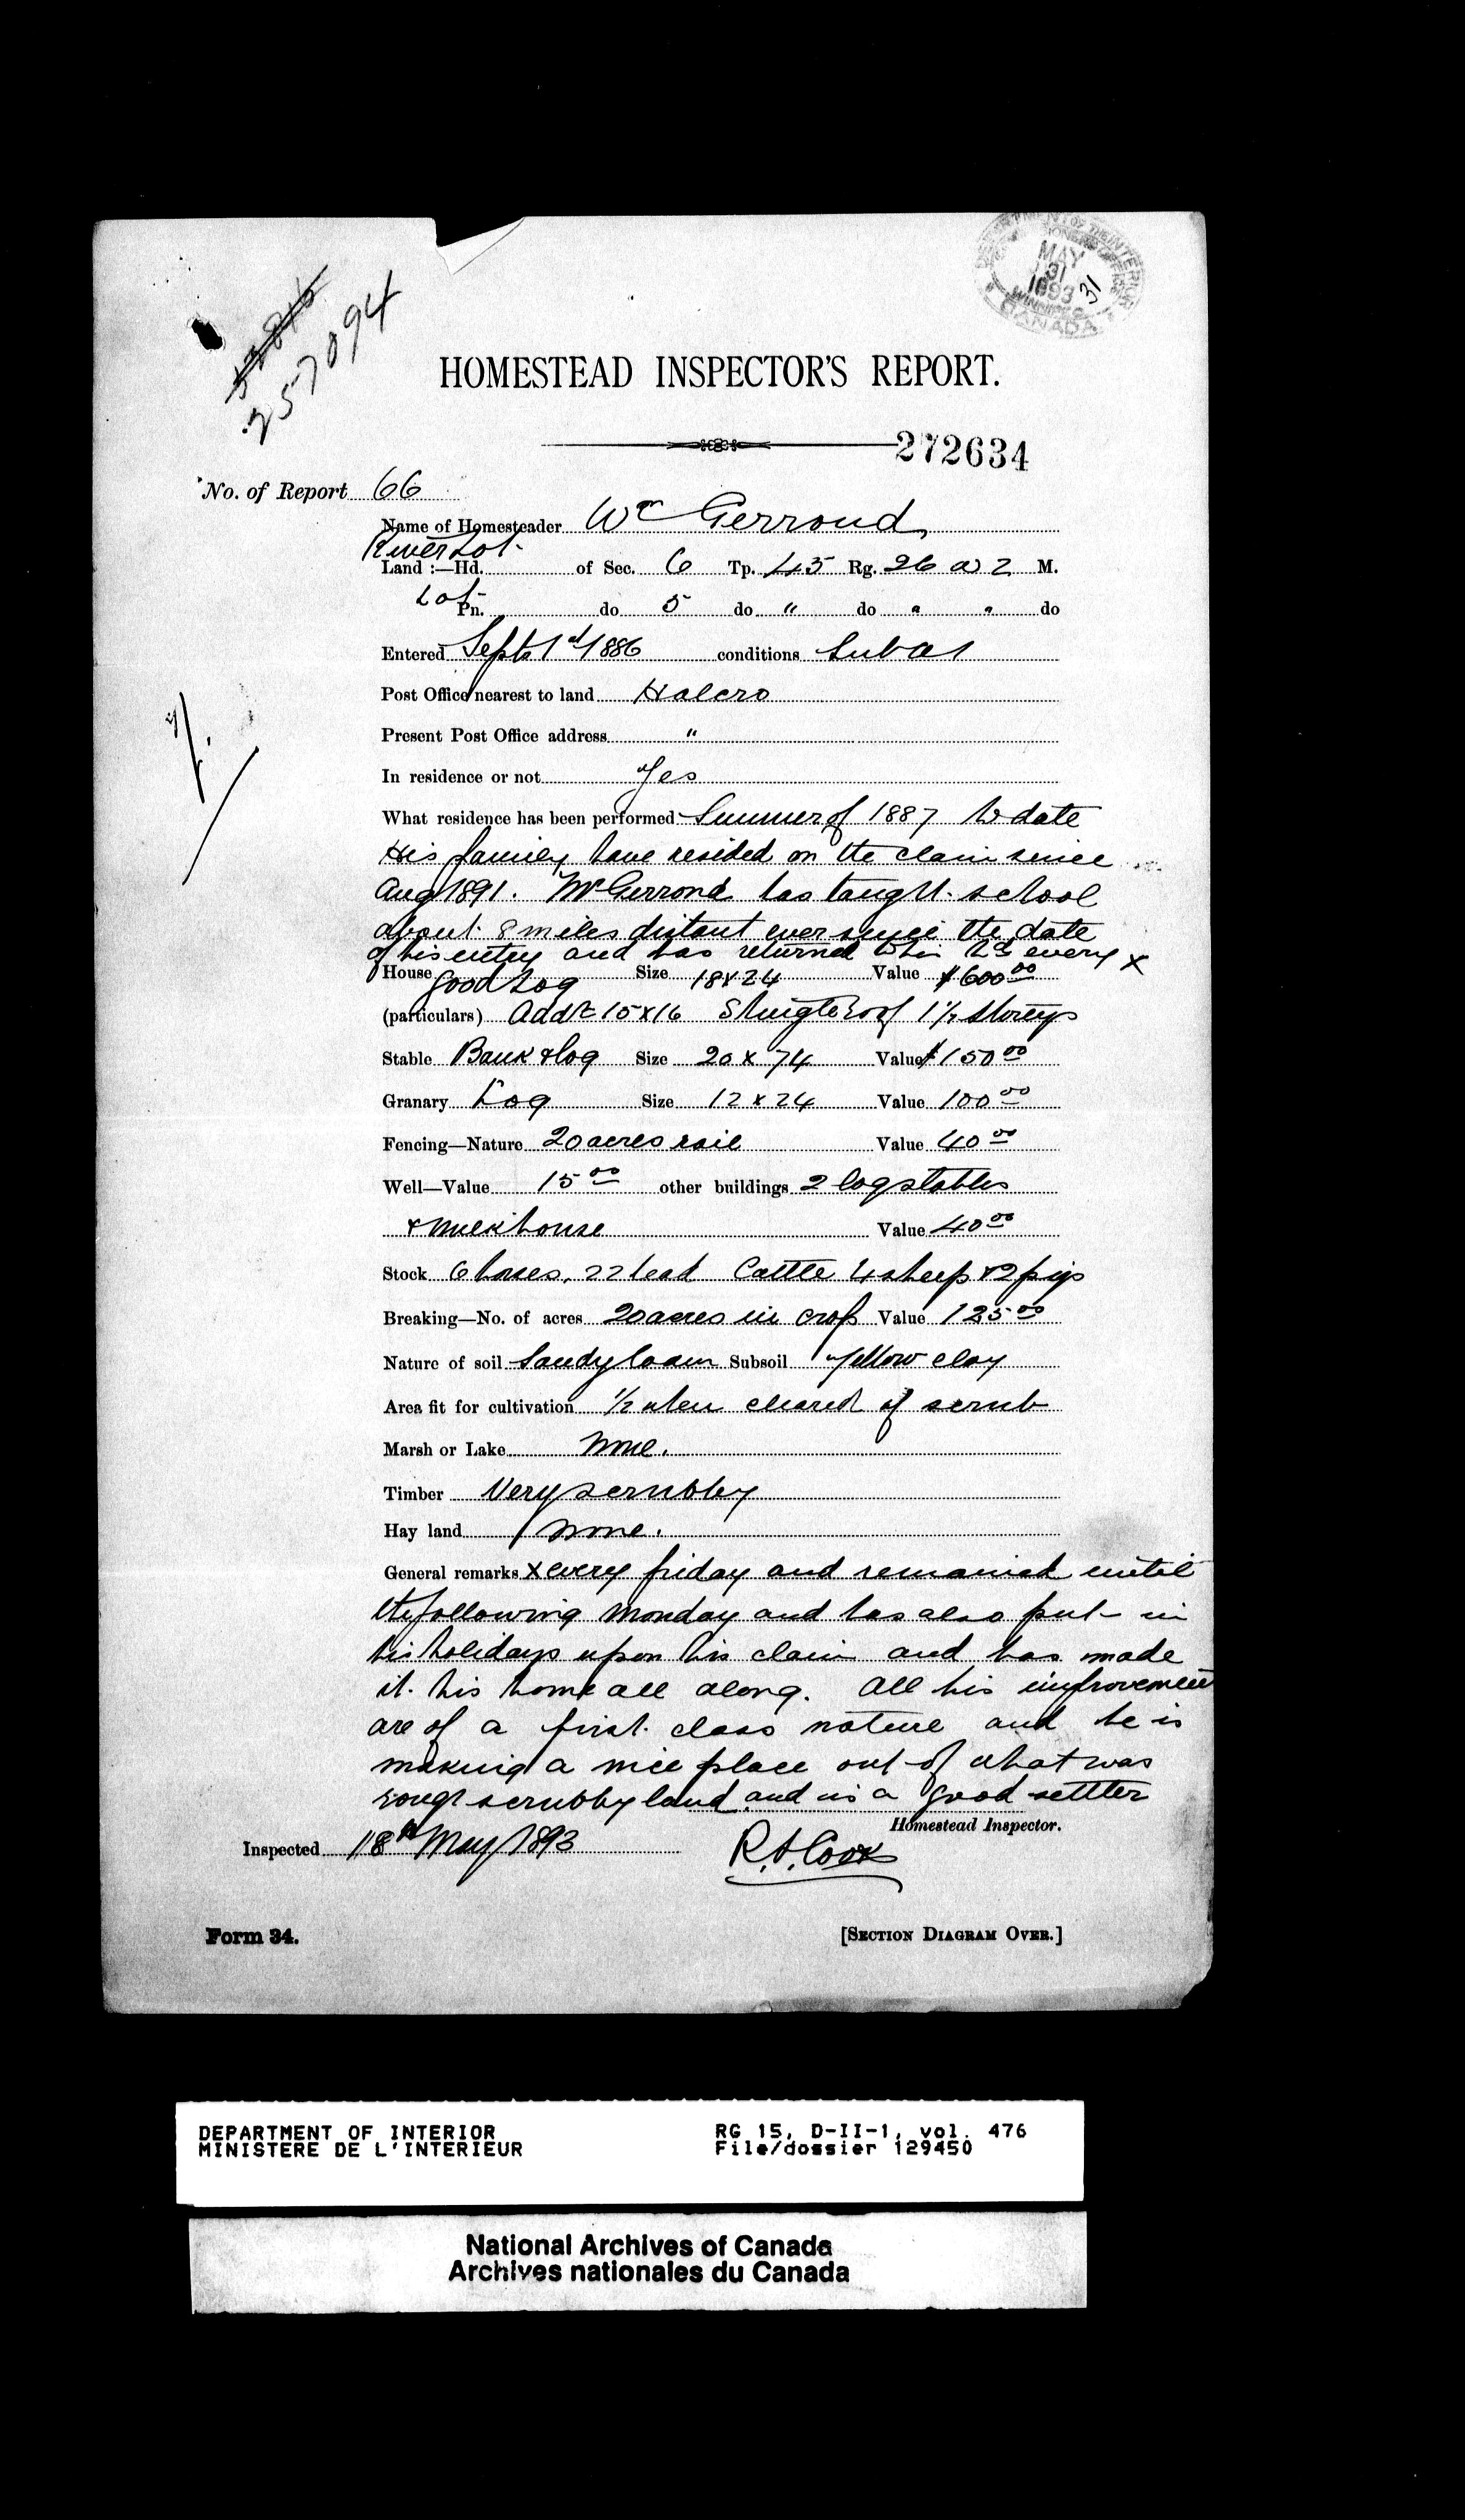 DEPARTMENT OF THE INTERIOR
MAY
31
1893
31
WINNIPEG
CANADA
257094
HOMESTEAD INSPECTOR'S REPORT.
272634
No. of Report 66
Name of Homesteader Wm Gerrond
River Lot
Land :—Hd. of Sec. 6 Tp. 45 Rg. 26 W 2 M.
Lot
Pn. do 5 do " do " " do
Entered Sept 1st 1886 conditions
Post Office nearest to land Halcro
Present Post Office address "
In residence or not Yes
What residence has been performed Summer of 1887 to date
His family have resided on the claim since
Aug 1891. Mr Gerrond has taught school
about 8 miles distant ever since the date
of his entry and has returned to his every x
House Good Log Size 18x24 Value $600 00
(particulars) Addt 15x16 Shingle roof 1½ storeys
Stable Bank & log Size 20 x 74 Value $150 00
Granary Log Size 12 x 24 Value 100 00
Fencing—Nature 20 acres rail Value 40 00
Well—Value 15 00 other buildings 2 log stables
& milkhouse Value 40 00
Stock 6 horses, 22 head Cattle 4 sheep & 2 pigs
Breaking—No. of acres 20 acres in crop Value 125 00
Nature of soil Sandy loam Subsoil Yellow clay
Area fit for cultivation ½ when cleared of scrub
Marsh or Lake None.
Timber Very scrubby
Hay land None.
General remarks x every friday and remained until
the following Monday and has also put in
his holidays upon his claim and has made
it his home all along. All his improvements
are of a first class nature and he is
making a nice place out of what was
rough scrubby land and is a good settler
Homestead Inspector.
Inspected 18th May 1893 R.S. Cook
Form 34. [SECTION DIAGRAM OVER.]
DEPARTMENT OF INTERIOR RG 15, D-II-1, vol. 476
MINISTERE DE L'INTERIEUR File/dossier 129450
National Archives of Canada
Archives nationales du Canada